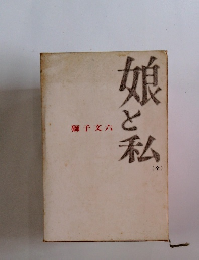 娘と私
獅子文六